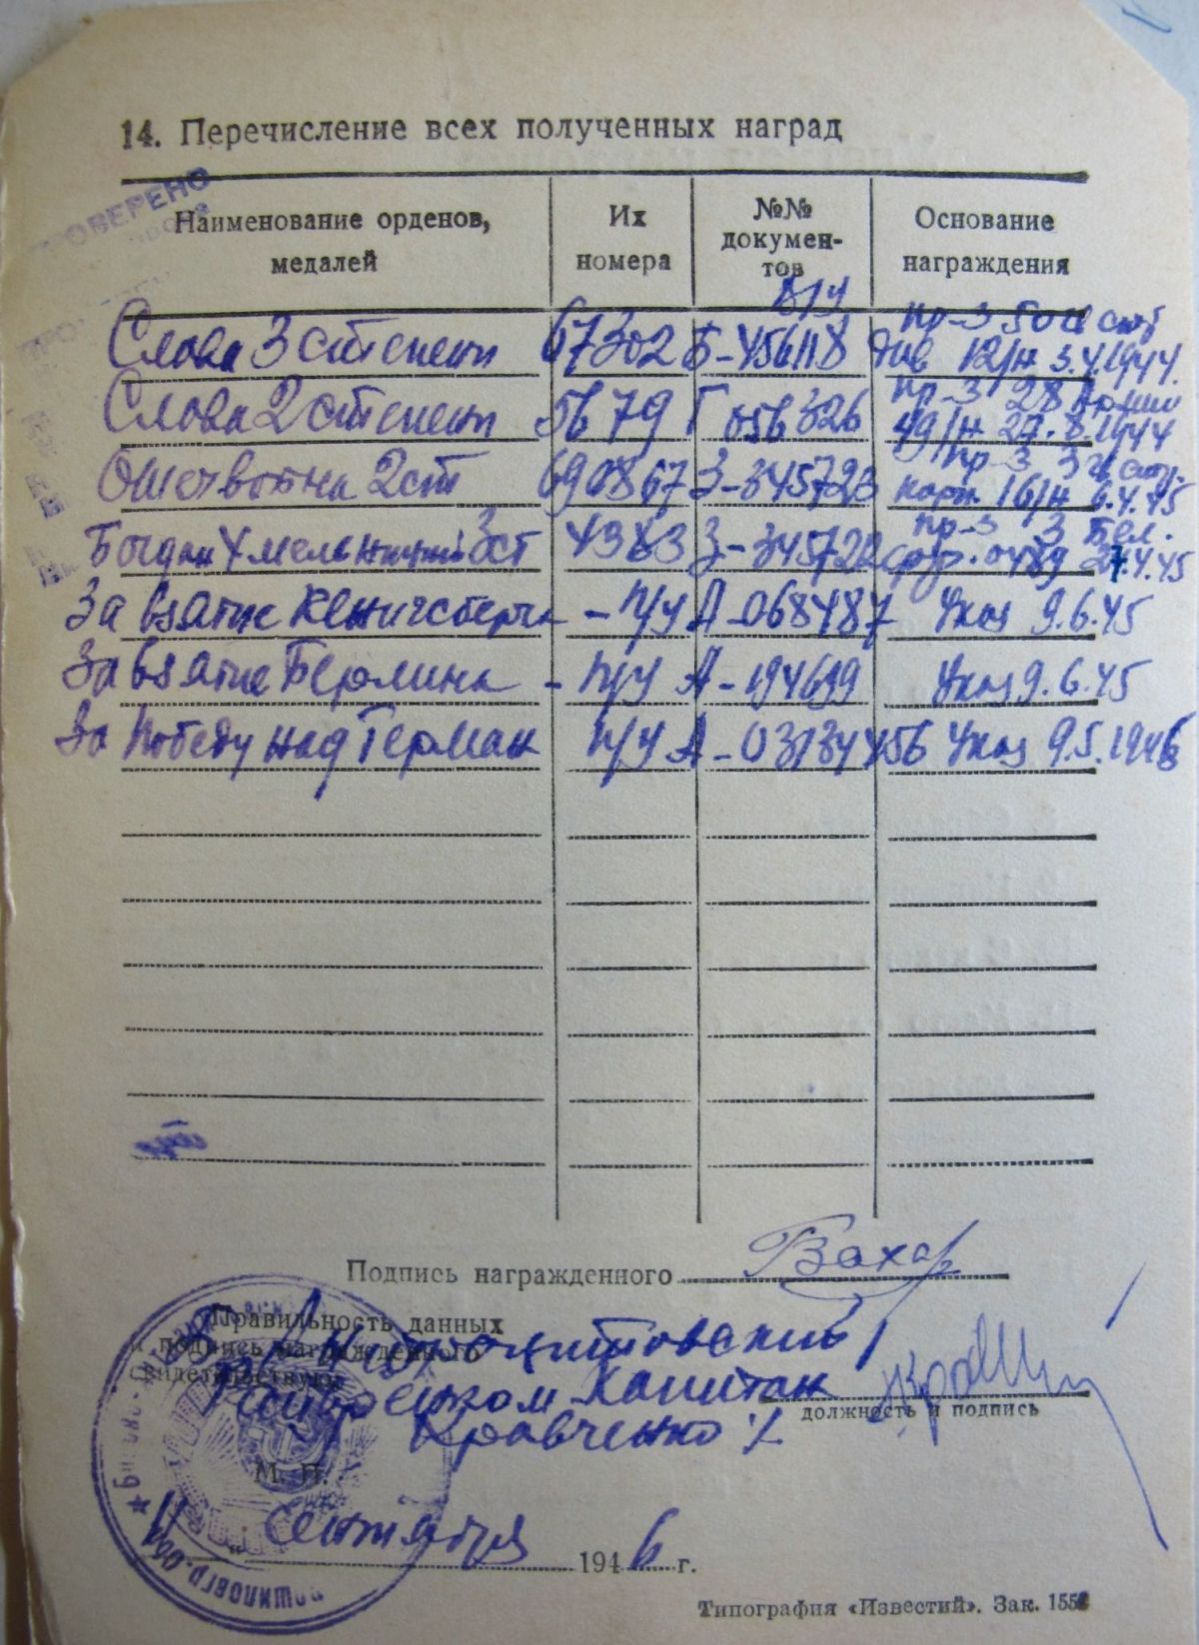 14. Перечисление всех полученных наград
ПРОВЕРЕНО
Наименование орденов, медалей
Их номера
№№ докумен-тов
Основание награждения
Слава 3 степени 67302 Б-456118 пр-з 50й див 12/н 3.4.1944.
Слава 2 степени 5679 Г 056326 пр-з 28 Армии 49/н 27.8.1944
Отеч войны 2 ст 690867 З-345723 пр-з 3 корп 16/н 6.4.45
Богдан Хмельницкий 3 ст 4383 З-345722 пр-з 3 Бел. 0489 27.4.45
За взятие Кенигсберга - п/у А-068487 Указ 9.6.45
За взятие Берлина - п/у А-194699 Указ 9.6.45
За Победу над Герман п/у А-03134456 Указ 9.5.1946
Подпись награжденного Захар
Правильность данных
подпись награжденного
видетельствую
Капитан
Кравченко
должность и подпись
М. П.
„11" Сентября 1946 г.
Типография «Известий». Зак.